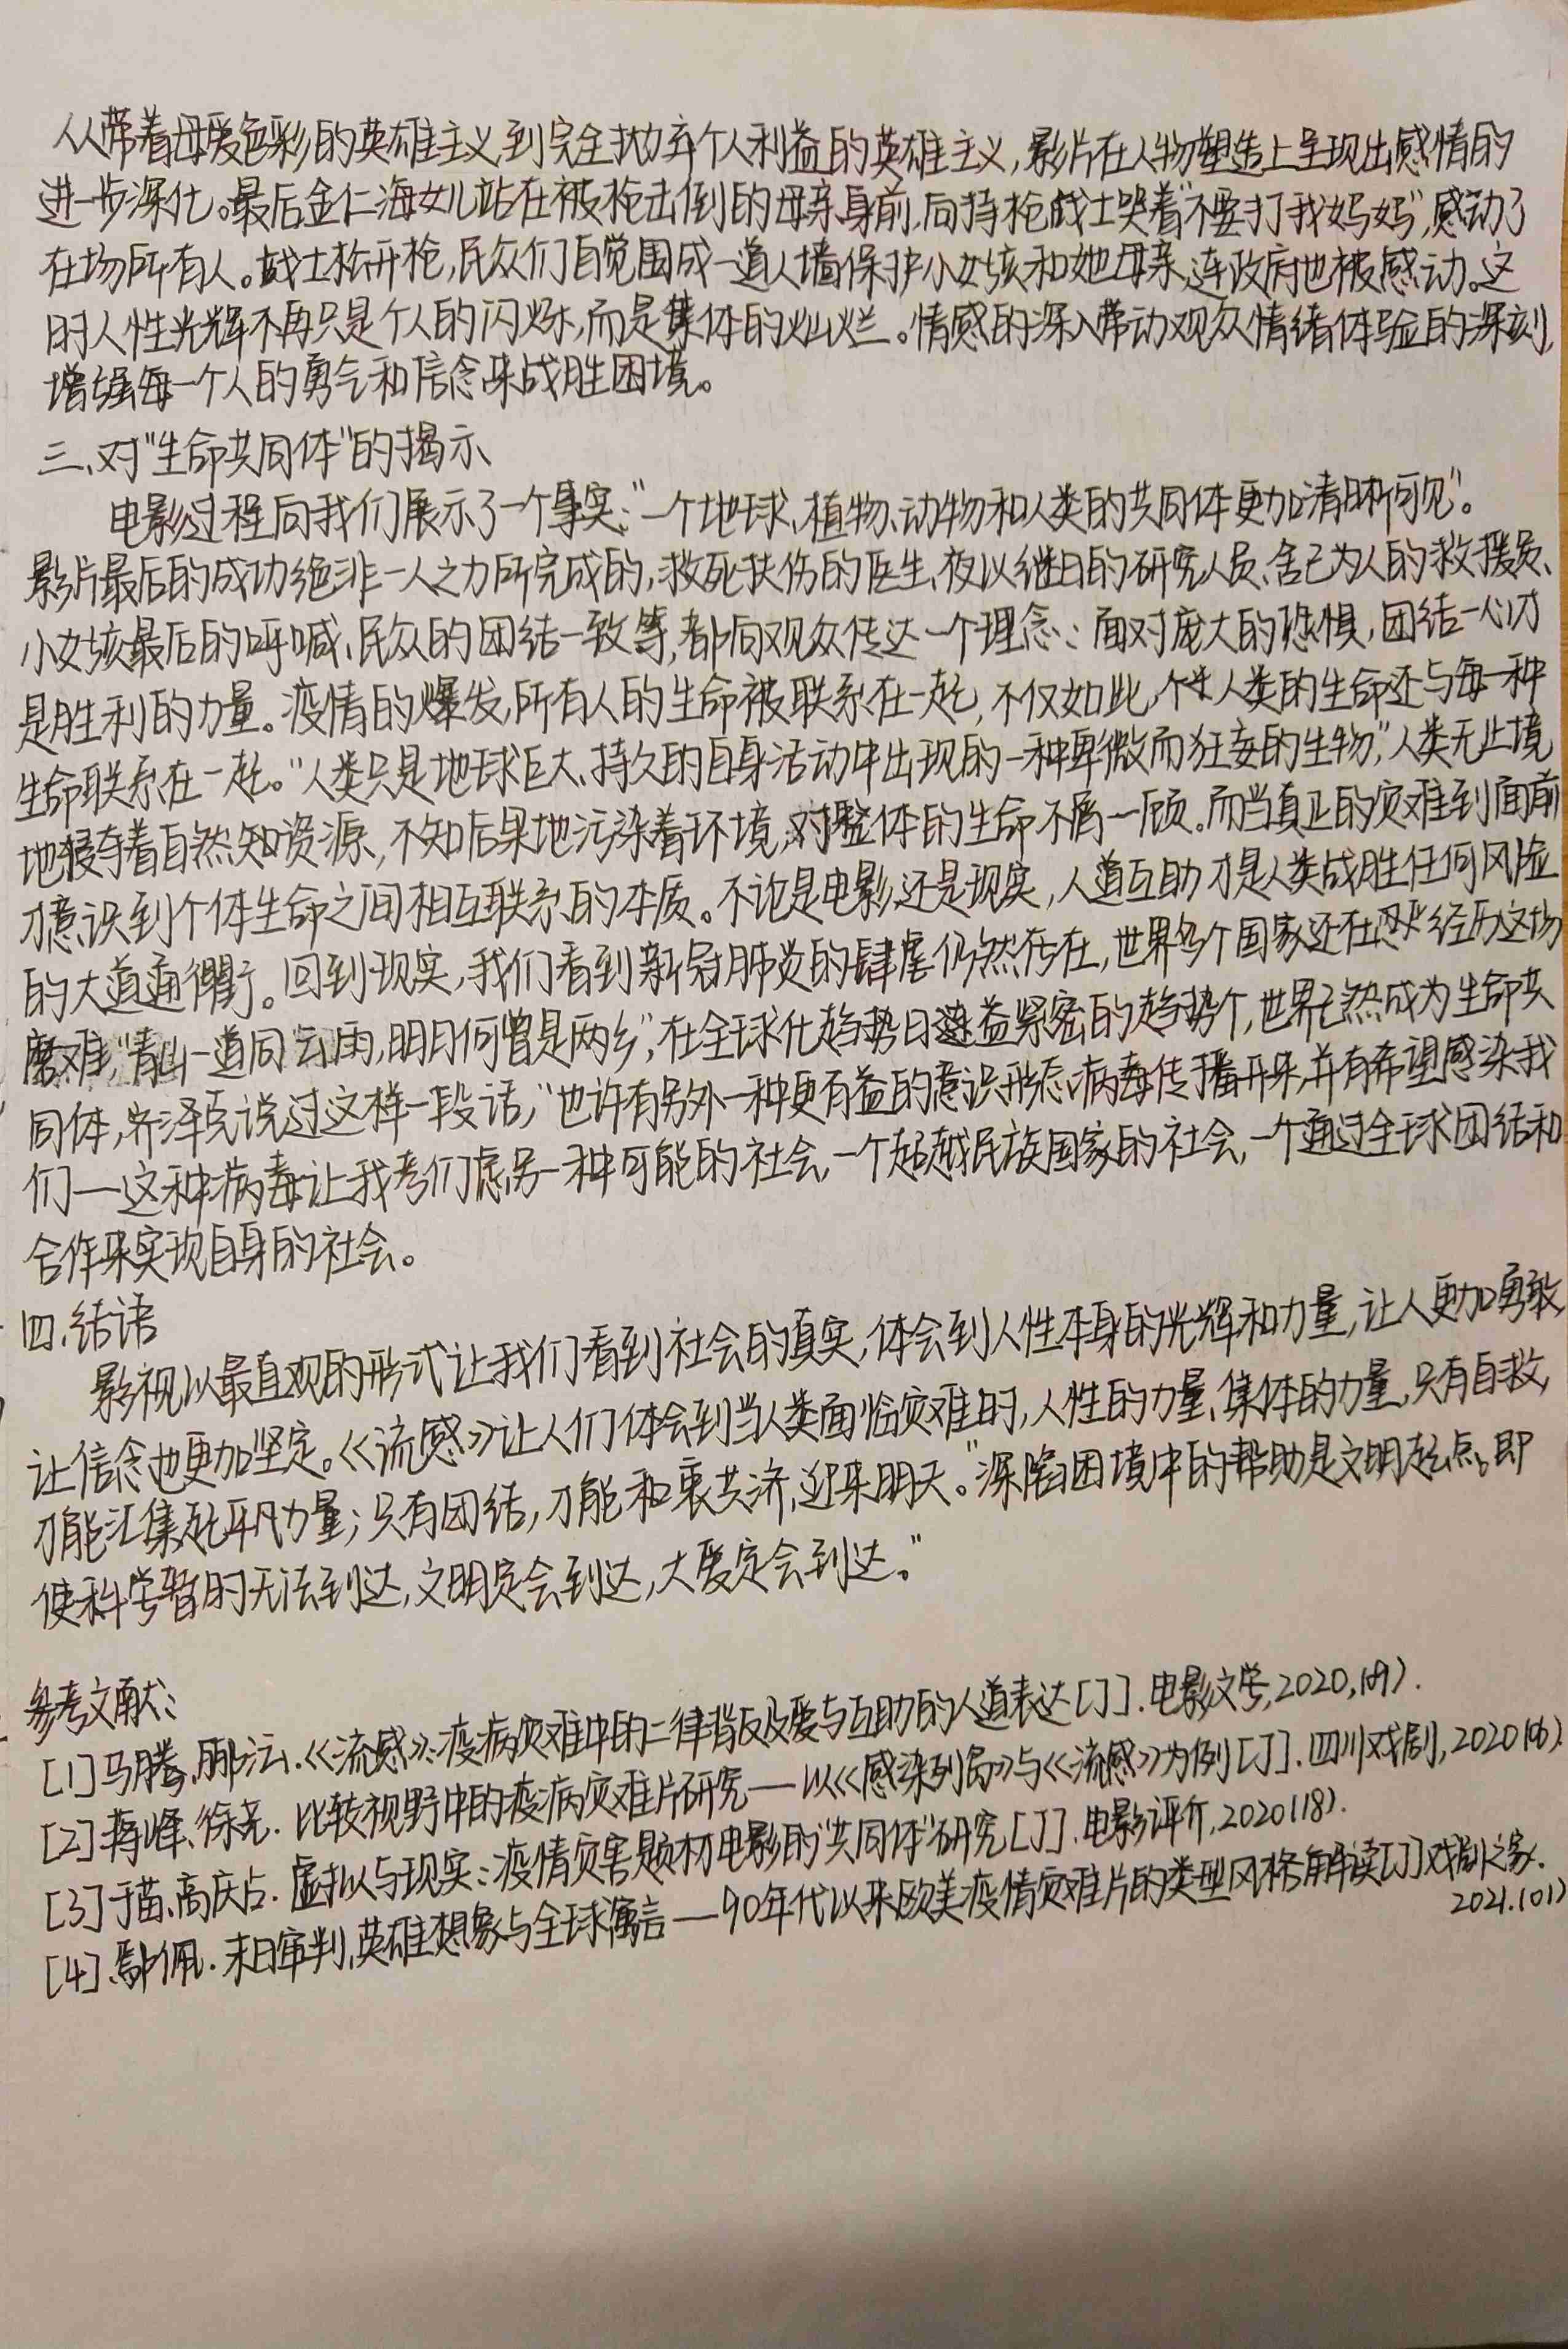 从带着母爱色彩的英雄主义到完全抛弃个人利益的英雄主义,影片在人物塑造上呈现出感情的
进一步深化。最后金仁海女儿站在被枪击倒的母亲身前,向持枪战士哭着"不要打我妈妈",感动了
在场所有人。战士松开枪,民众们自觉围成一道人墙保护小女孩和她母亲,连政府也被感动。这
时人性光辉不再只是个人的闪烁,而是集体的灿烂。情感的深入带动观众情绪体验的深刻,
增强每一个人的勇气和信念来战胜困境。
三、对"生命共同体"的揭示
电影过程向我们展示了一个事实:"一个地球、植物、动物和人类的共同体更加清晰可见"。
影片最后的成功绝非一人之力所完成的,救死扶伤的医生、夜以继日的研究人员、舍己为人的救援员、
小女孩最后的呼喊、民众的团结一致等,都向观众传达一个理念:面对庞大的恐惧,团结一心才
是胜利的力量。疫情的爆发,所有人的生命被联系在一起,不仅如此,人类的生命还与每一种
生命联系在一起。"人类只是地球巨大、持久的自身活动中出现的一种卑微而狂妄的生物",人类无止境
地侵夺着自然知资源,不知后果地污染着环境,对整体的生命不屑一顾。而当真正的灾难到面前
才意识到个体生命之间相互联系的本质。不论是电影还是现实,人道互助才是人类战胜任何风险
的大道通衢。回到现实,我们看到新冠肺炎的肆虐仍然存在,世界各个国家还在经历这场
磨难,"青山一道同云雨,明月何曾是两乡",在全球化趋势日益紧密的趋势下,世界已然成为生命共
同体,齐泽克说过这样一段话,"也许有另外一种更有益的意识形态病毒传播开来,并有希望感染我
们—这种病毒让我考们虑另一种可能的社会,一个超越民族国家的社会,一个通过全球团结和
合作来实现自身的社会。
四.结语
影视以最直观的形式让我们看到社会的真实,体会到人性本身的光辉和力量,让人更加勇敢,
让信念也更加坚定。《流感》让人们体会到当人类面临灾难时,人性的力量、集体的力量,只有自救,
才能汇集起平凡力量;只有团结,才能和衷共济,迎来明天。"深陷困境中的帮助是文明起点。即
使科学暂时无法到达,文明定会到达,大爱定会到达。"
参考文献:
[1]马腾,邢沄.《流感》:疫病灾难中的二律背反及爱与互助的人道表达[J].电影文学,2020,(09).
[2]蒋峰、徐尧.比较视野中的疫病灾难片研究—以《感染列岛》与《流感》为例[J].四川戏剧,2020(06).
[3]于苗、高庆占.虚拟与现实:疫情灾害题材电影的"共同体"研究[J].电影评介,2020(18).
[4].鄢佩.末日审判,英雄想象与全球寓言—90年代以来欧美疫情灾难片的类型风格解读[J]戏剧之家.
2021.(01)